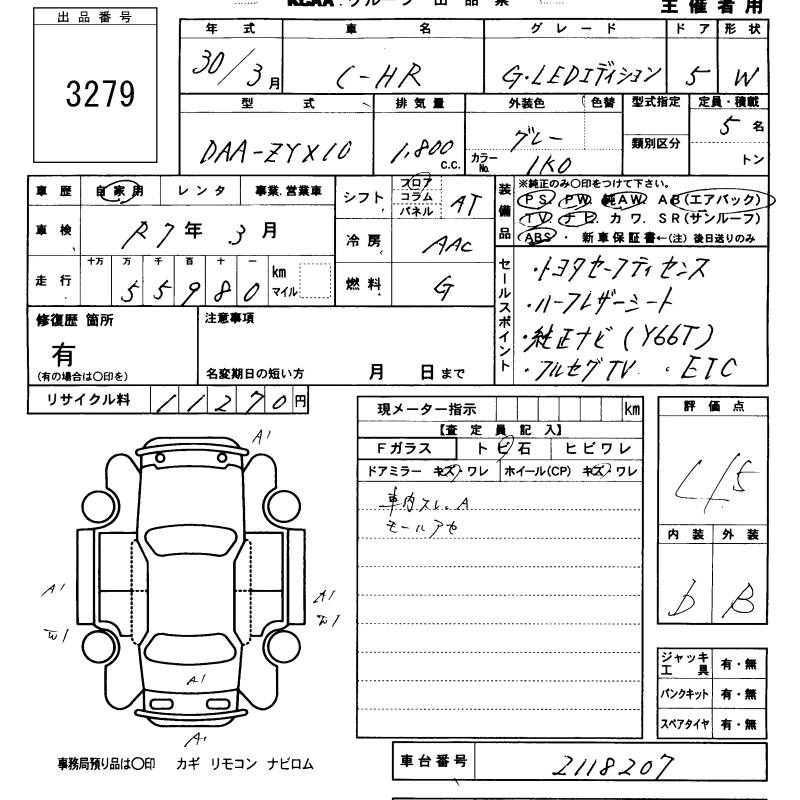 KCAA.グループ 出品票
主催者用
出品番号
3279
年式 車名 グレード ドア 形状
30/3月 C-HR G・LEDエディション 5 W
型式 排気量 外装色 色替 型式指定 定員・積載
類別区分
DAA-ZYX10 1,800 c.c. グレー カラーNo. 1K0 5名
トン
車歴 自家用 レンタ 事業.営業車
車検 R7年3月
走行 十万 万 千 百 十 一
55980 km マイル
シフト フロア コラム パネル AT
冷房 AAC
燃料 G
装備品 ※純正のみ〇印をつけて下さい。
PS. PW. 純AW. AB(エアバック)
TV. ナビ. カワ. SR(サンルーフ)
ABS ・ 新車保証書←(注) 後日送りのみ
セールスポイント
・トヨタセーフティセンス
・ハーフレザーシート
・純正ナビ(Y66T)
・フルセグTV ・ETC
修復歴 箇所
有
(有の場合は〇印を)
注意事項
名変期日の短い方 月 日まで
リサイクル料 11270円
現メーター指示 km
【査定員記入】
Fガラス トビ石 ヒビワレ
ドアミラー キズ・ワレ ホイール(CP) キズ・ワレ
車内スレ.A
モールアセ
評価点
4/5
内装 外装
b B
A1
A1
A1
A1
A1
ジャッキ工具 有・無
パンクキット 有・無
スペアタイヤ 有・無
事務局預り品は〇印 カギ リモコン ナビロム
車台番号 2118207